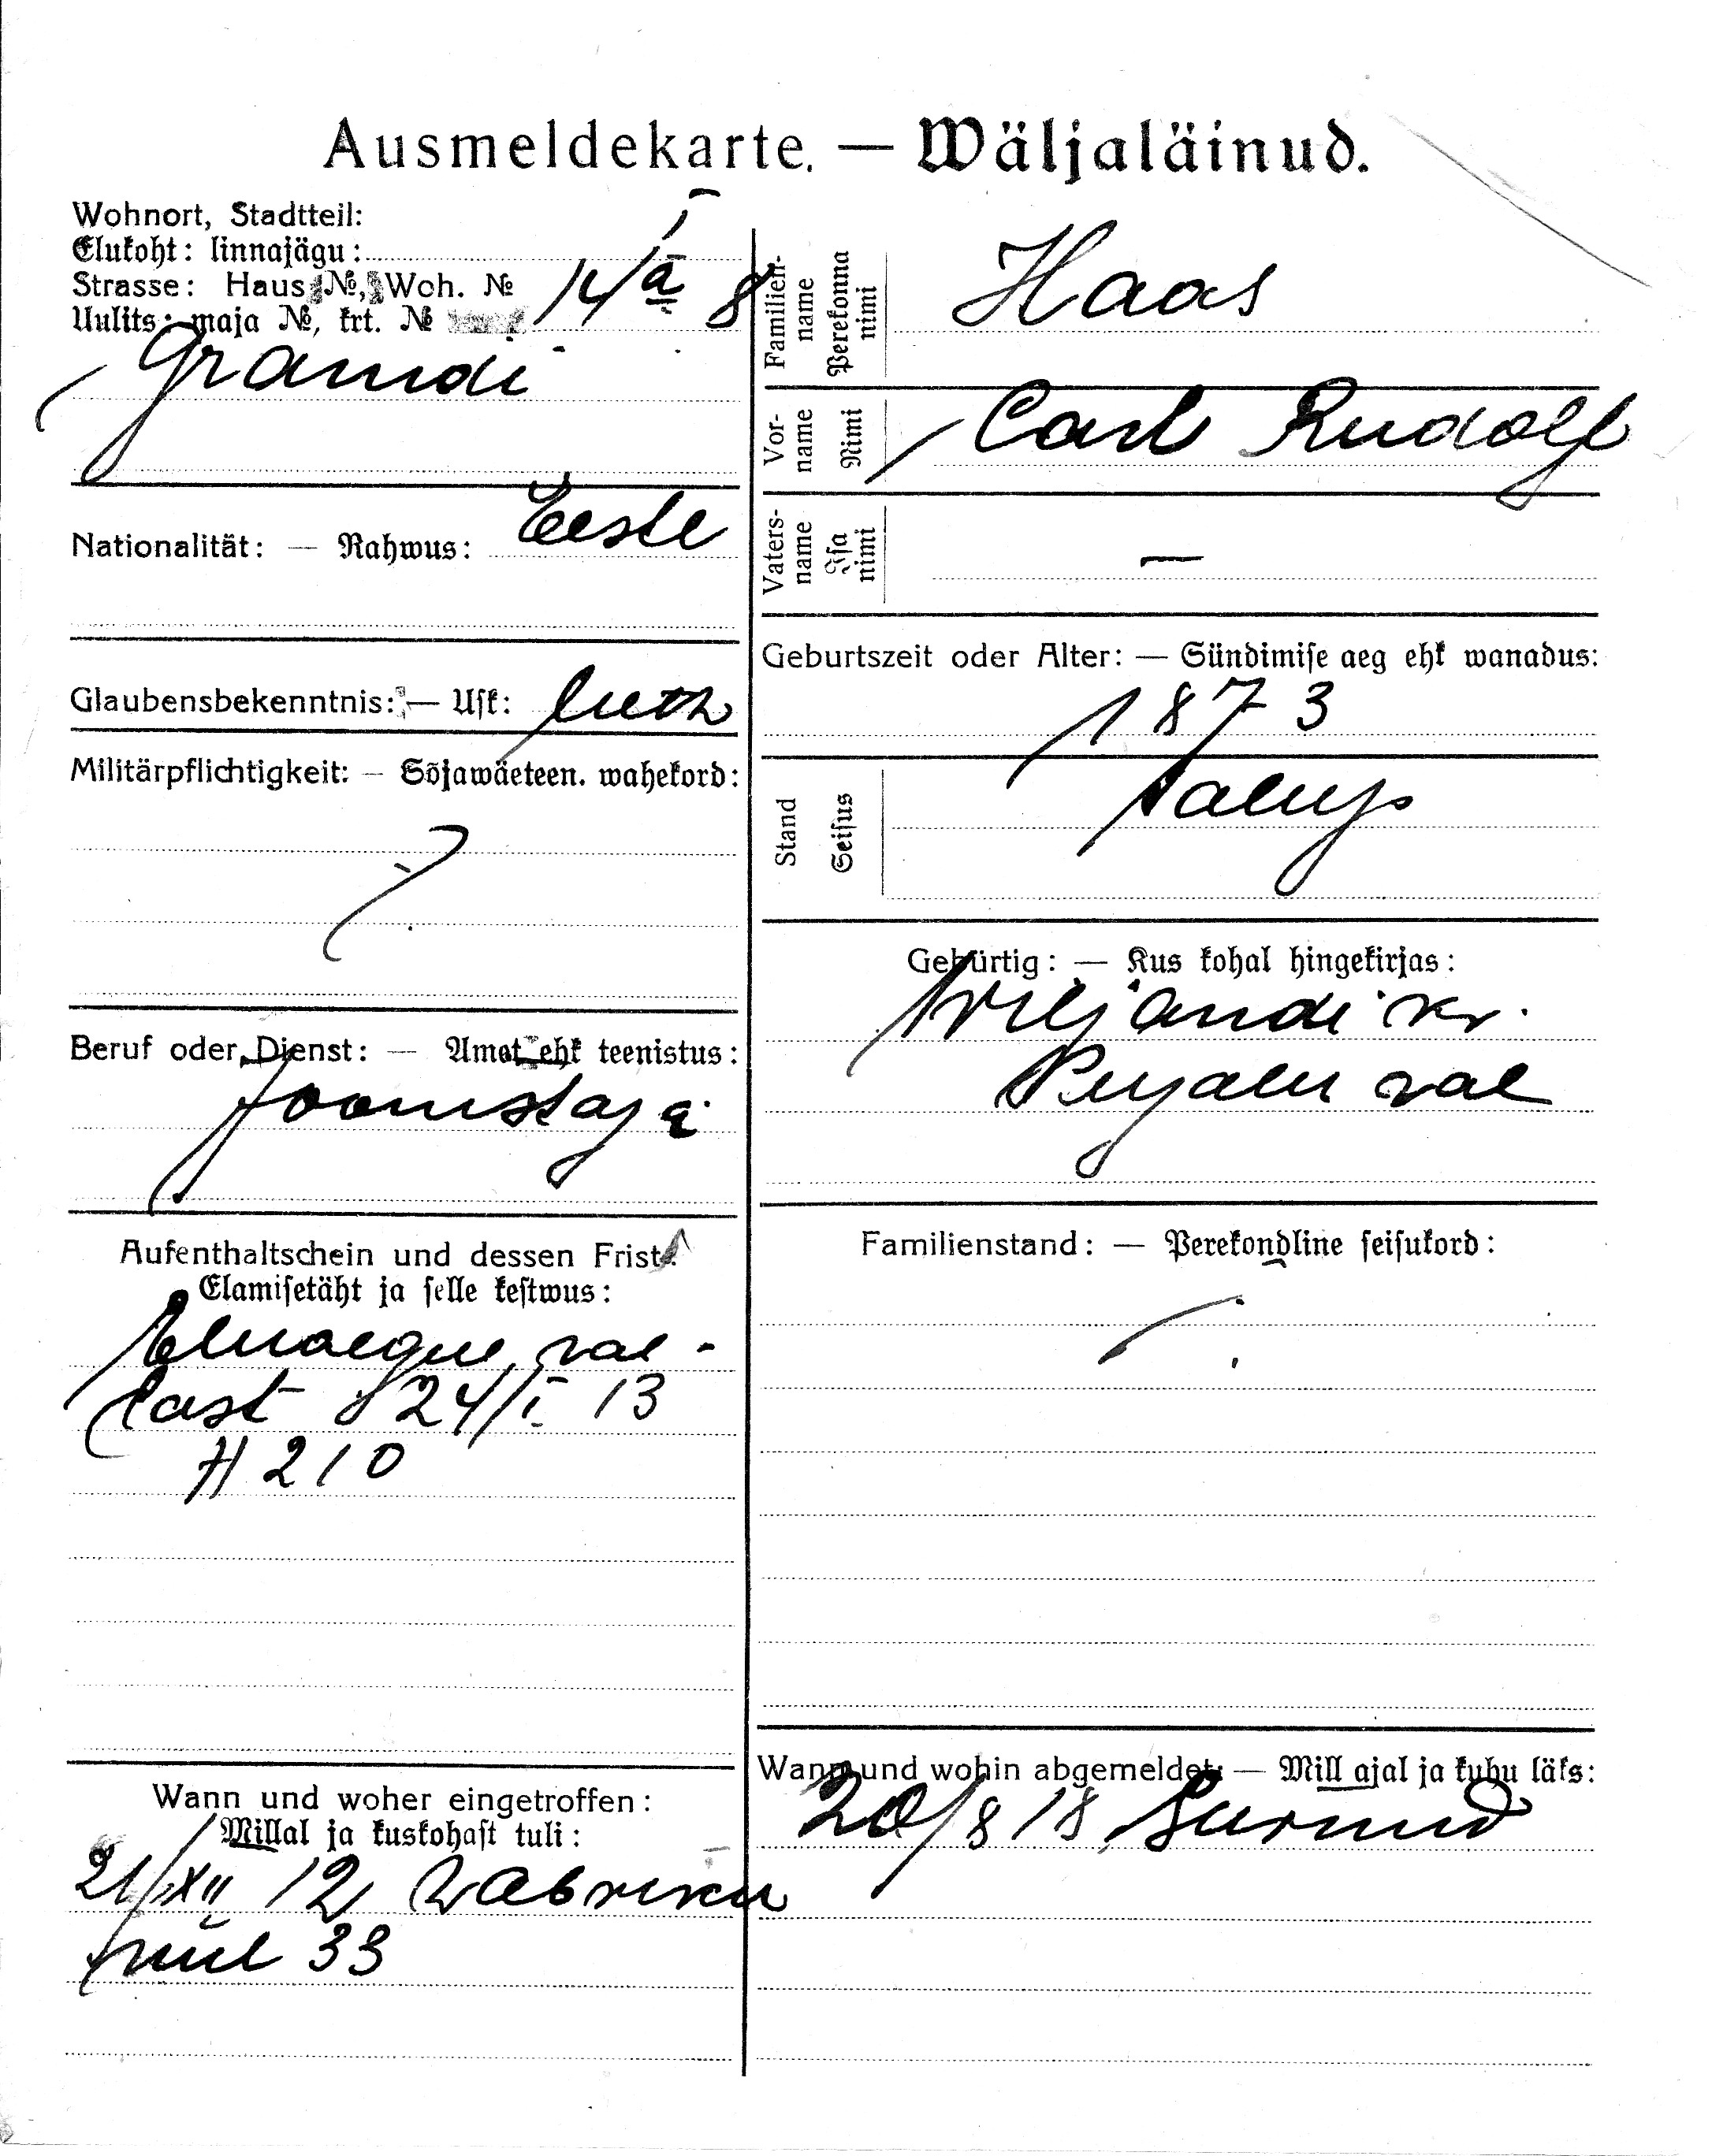 Ausmeldekarte. — Wäljaläinud.
Wohnort, Stadtteil: I
Elukoht: linnajägu:
Strasse: Haus №, Woh. №
Uulits: maja №, krt. № 14a 8
Grandi
Nationalität: — Rahwus: Eesti
Glaubensbekenntnis: — Usk: luth
Militärpflichtigkeit: — Sõjawäeteen. wahekord:
Beruf oder Dienst: — Amet ehk teenistus:
joonistaja
Aufenthaltschein und dessen Frist:
Elamisetäht ja selle kestwus:
24/I 13
210
Wann und woher eingetroffen:
Millal ja kuskohast tuli:
21/XII 12 Wabriku
uul 33
Familienname Perekonna nimi Haas
Vorname Nimi Carl Rudolf
Vatersname Isa nimi —
Geburtszeit oder Alter: — Sündimise aeg ehk wanadus:
1873
Stand Seisus talup
Gebürtig: — Kus kohal hingekirjas:
Wiljandi kr.
wal
Familienstand: — Perekondline seisukord:
Wann und wohin abgemeldet: — Mill ajal ja kuhu läks:
20/8 18 Surnud